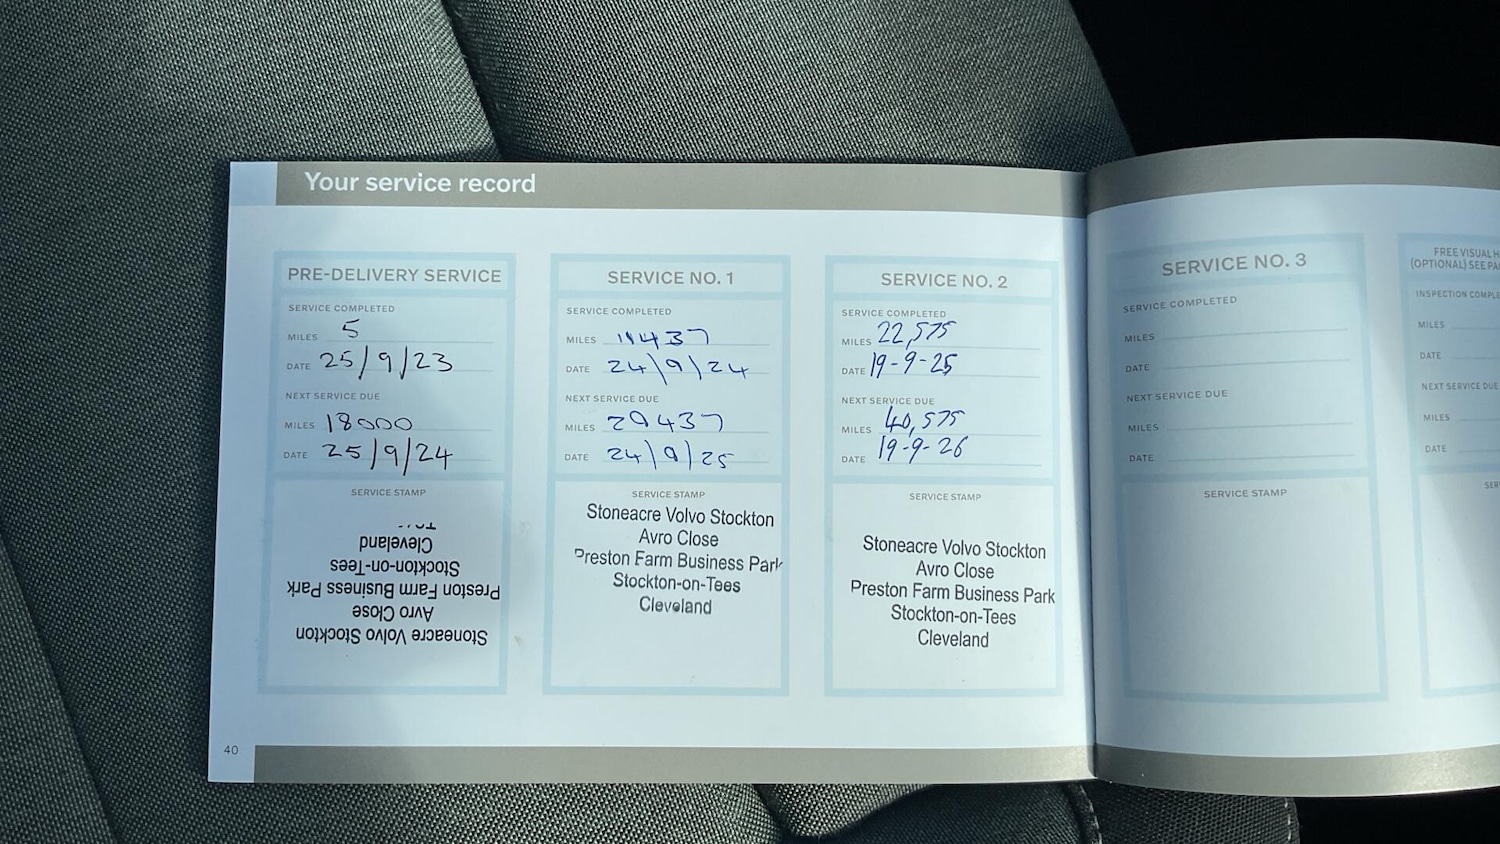 Your service record
PRE-DELIVERY SERVICE
SERVICE COMPLETED
MILES 5
DATE 25/9/23
NEXT SERVICE DUE
MILES 18000
DATE 25/9/24
SERVICE STAMP
Stoneacre Volvo Stockton
Avro Close
Preston Farm Business Park
Stockton-on-Tees
Cleveland
SERVICE NO. 1
SERVICE COMPLETED
MILES 11437
DATE 24/9/24
NEXT SERVICE DUE
MILES 29437
DATE 24/9/25
SERVICE STAMP
Stoneacre Volvo Stockton
Avro Close
Preston Farm Business Park
Stockton-on-Tees
Cleveland
SERVICE NO. 2
SERVICE COMPLETED
MILES 22,575
DATE 19-9-25
NEXT SERVICE DUE
MILES 40,575
DATE 19-9-26
SERVICE STAMP
Stoneacre Volvo Stockton
Avro Close
Preston Farm Business Park
Stockton-on-Tees
Cleveland
40
SERVICE NO. 3
SERVICE COMPLETED
MILES
DATE
NEXT SERVICE DUE
MILES
DATE
SERVICE STAMP
FREE VISUAL
(OPTIONAL) SEE
INSPECTION
MILES
DATE
NEXT SERVICE DUE
MILES
DATE